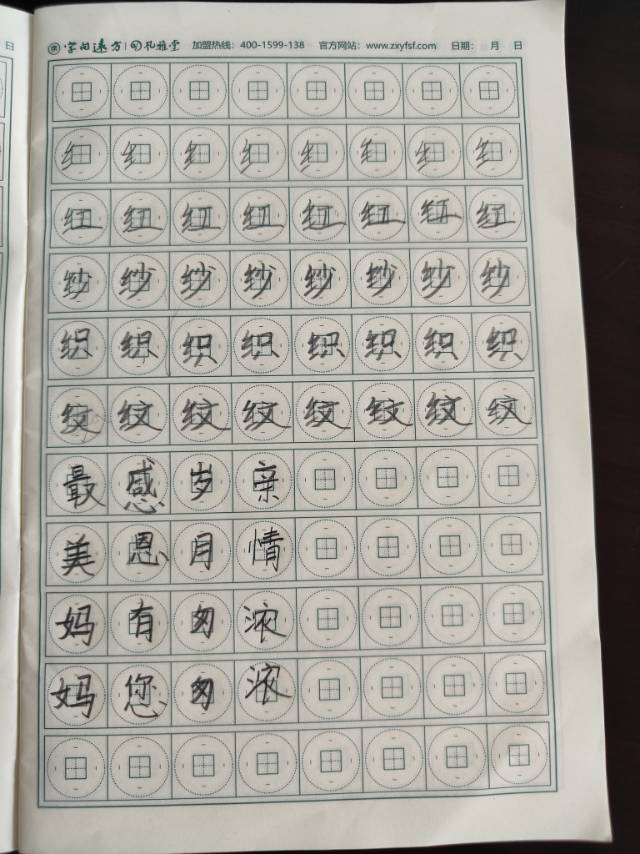 字向远方 习礼雅堂 加盟热线：400-1599-138 官方网站：www.zxyfsf.com 日期： 月 日
红 红 红 红 红 红 红 红
纱 纱 纱 纱 纱 纱 纱 纱
织 织 织 织 织 织 织 织
纹 纹 纹 纹 纹 纹 纹 纹
最 感 岁 亲
美 恩 月 情
妈 有 匆 浓
妈 您 匆 浓